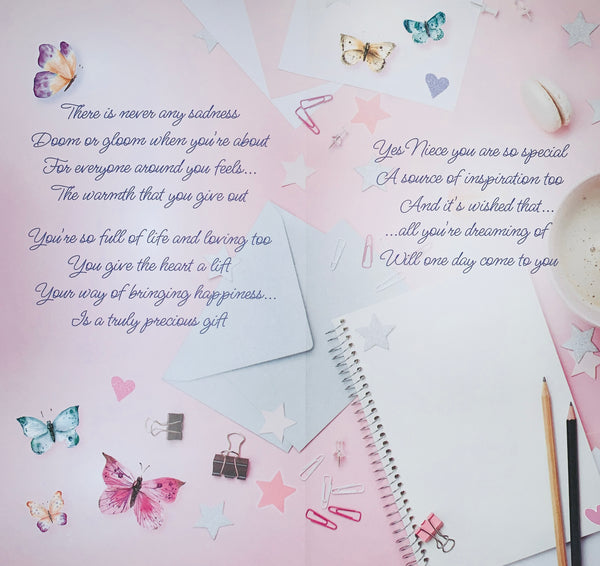 There is never any sadness
Doom or gloom when you're about
For everyone around you feels...
The warmth that you give out
You're so full of life and loving too
You give the heart a lift
Your way of bringing happiness...
Is a truly precious gift
Yes Niece you are so special
A source of inspiration too
And it's wished that...
...all you're dreaming of
Will one day come to you